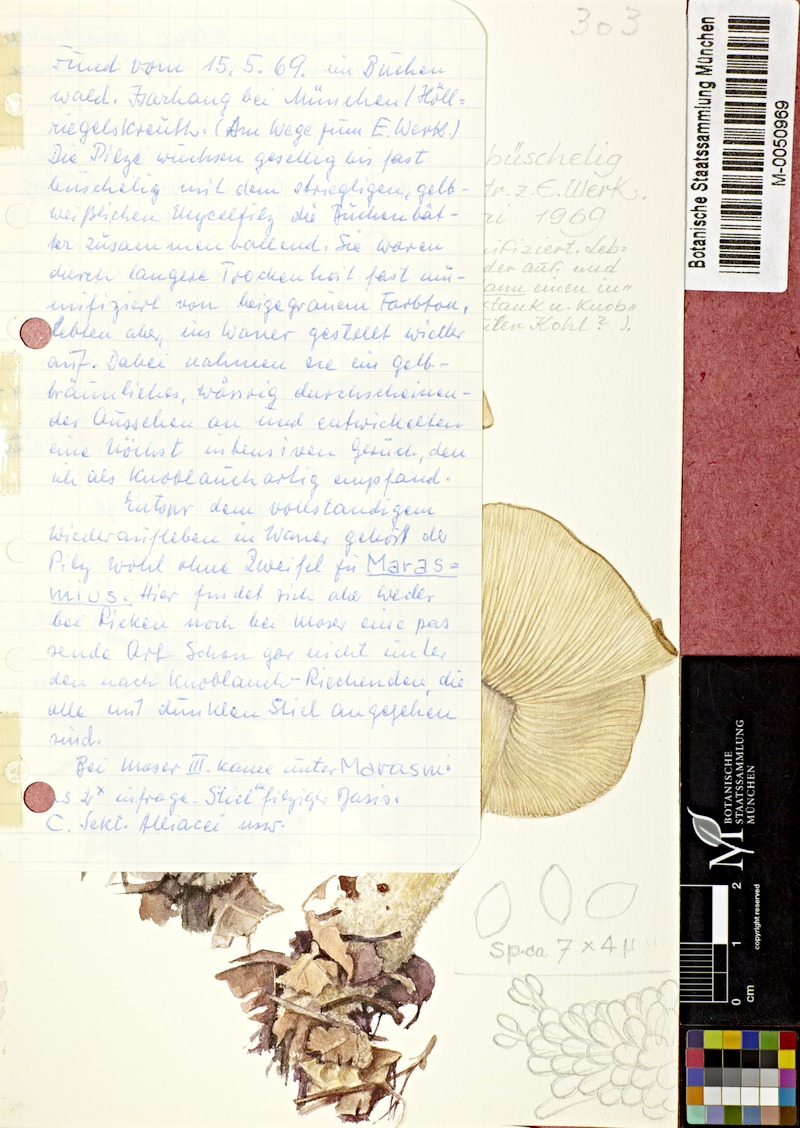 303
Fund vom 15.5.69. im Buchen
wald. Isarhang bei München (Höll-
riegelskreuth. (Am Wege zum E.Werk.)
Die Pilze wuchsen gesellig bis fast
büschelig mit dem striegligen, gelb-
weißlichen Mycelfilz die Buchenblät-
ter zusammenballend. Sie waren
durch längere Trockenheit fast mu-
mifiziert von beigegrauem Farbton,
lebten aber, ins Wasser gestellt wieder
auf. Dabei nahmen sie ein gelb-
bräunliches, wässrig durchscheinen-
des Aussehen an und entwickelten
eine höchst intensiven Geruch, den
ich als Knoblauchartig empfand.
Entspr dem vollständigem
Wiederaufleben in Wasser gehört der
Pilz wohl ohne Zweifel zu Maras=
mius. Hier findet sich aber weder
bei Ricken noch bei Moser eine pas
sende Art. Schon gar nicht unter
den nach Knoblauch-Riechenden, die
alle mit dunklem Stiel angegeben
sind.
Bei Moser III. käme unter Marasmi-
us 2x infrage. Stiel "filziger Basis.
C. Sekt. Alliacei usw.
büschelig
tr. z. E.Werk.
ai 1969
nifiziert. Leb=
der auf und
ann einen in"
stank n. Knob"
ter Kohl? ).
sp.ca 7 x 4 µ
Botanische Staatssammlung München
M-0050969
BOTANISCHE
STAATSSAMMLUNG
MÜNCHEN
M
0 1 2
cm
copyright reserved